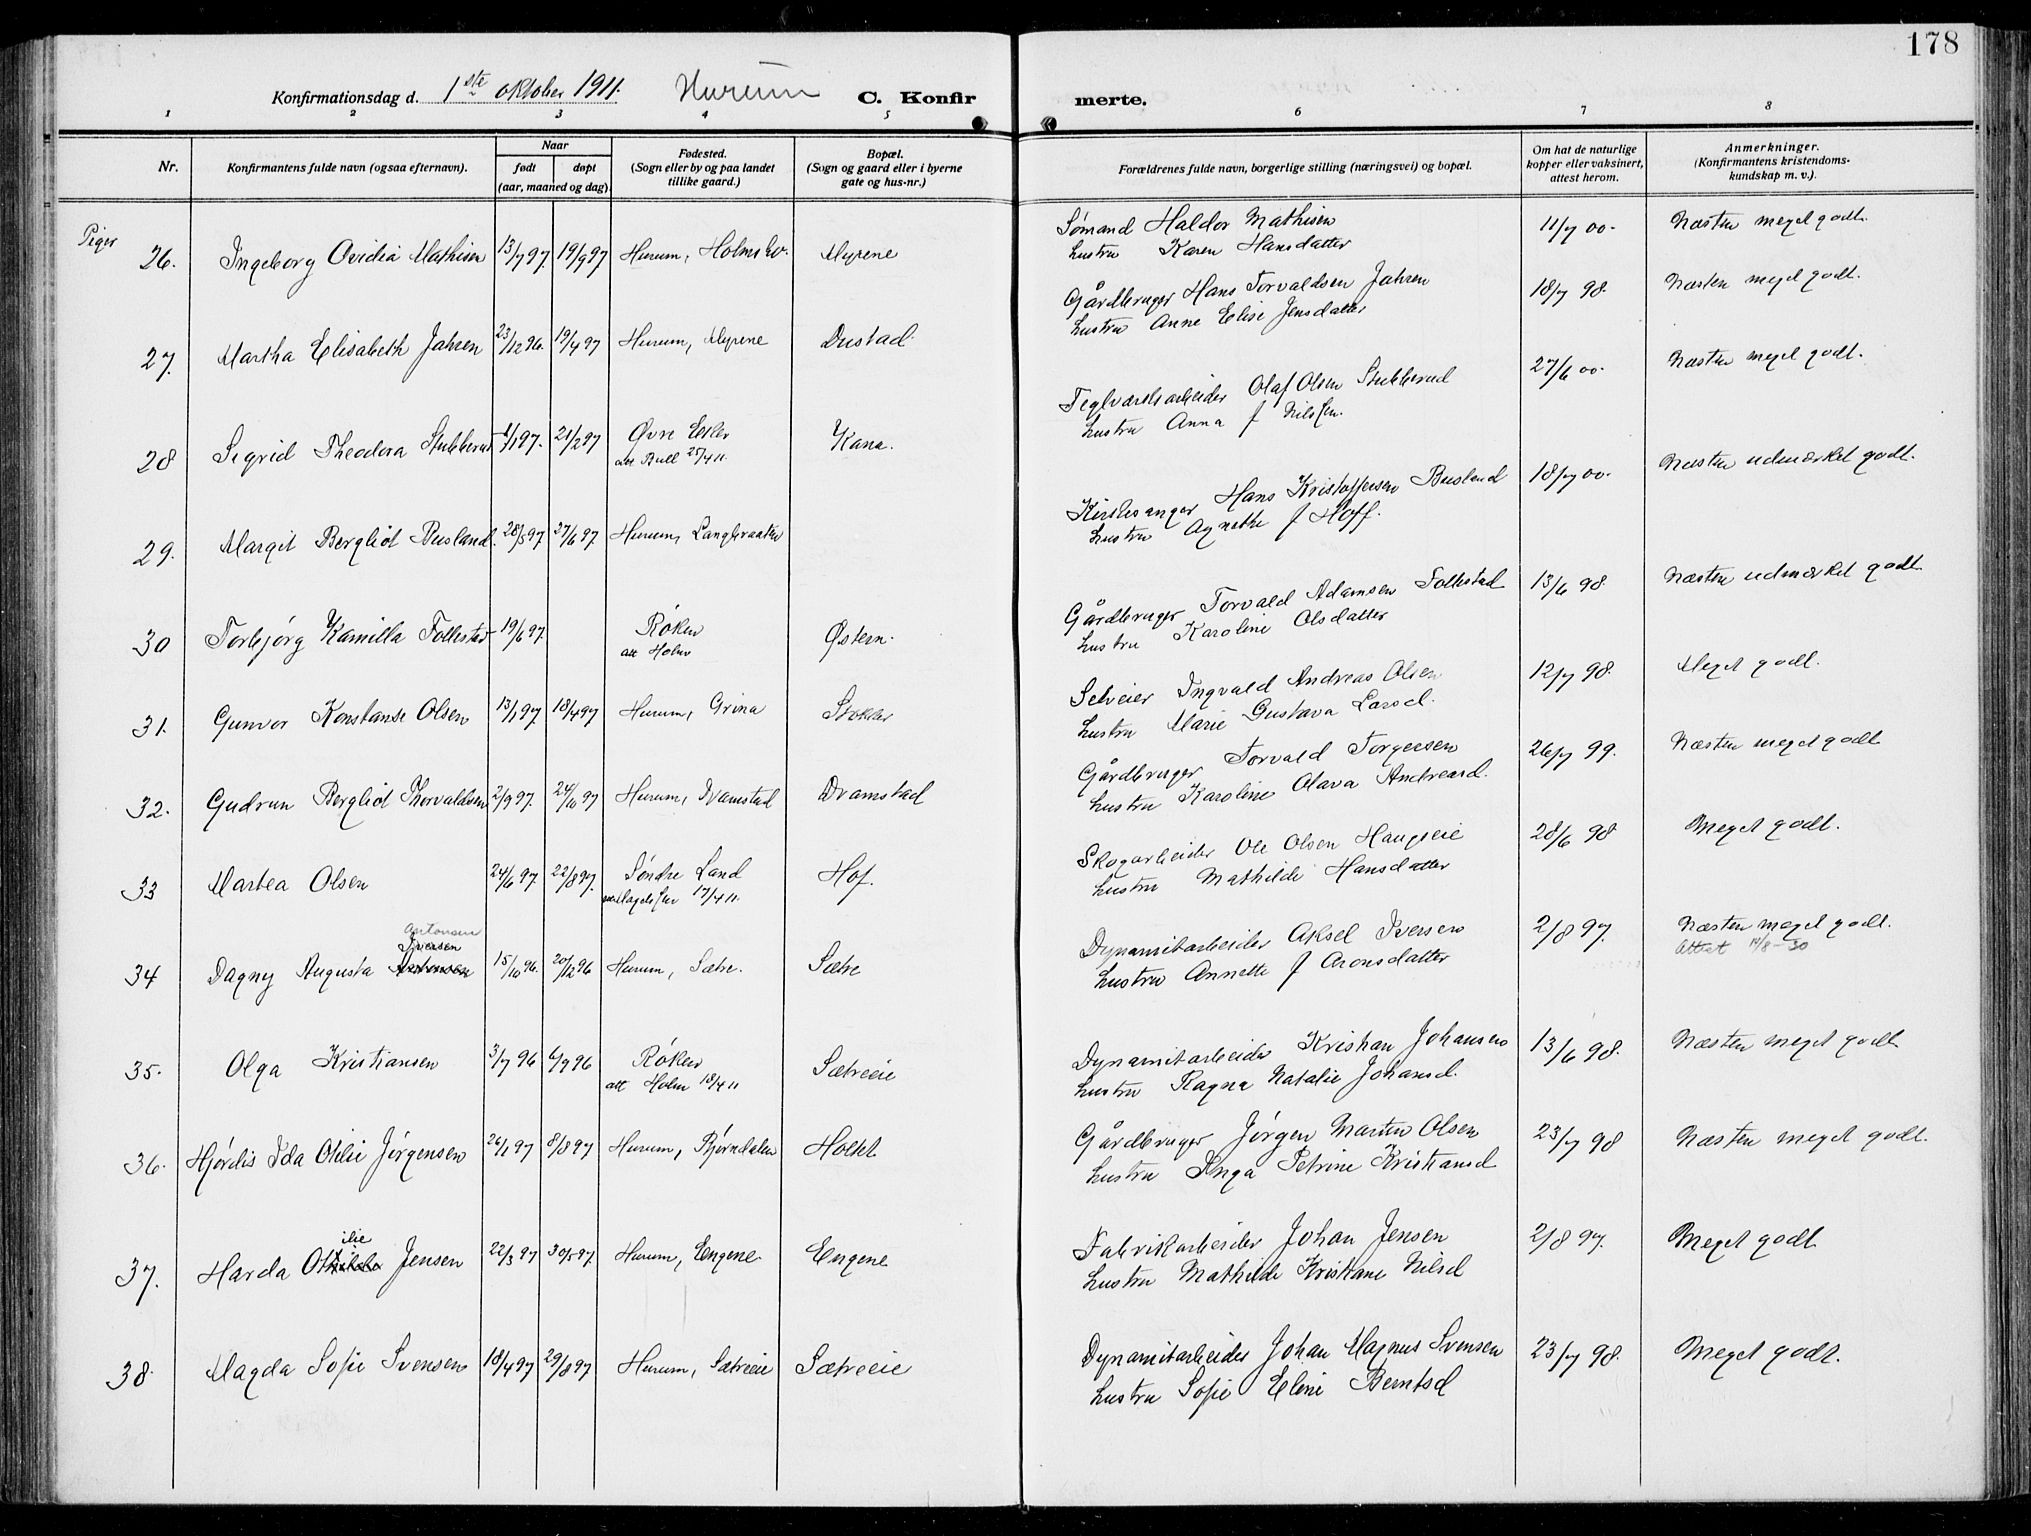 178
Konfirmationsdag d. 1ste oktober 1911. Hurum C. Konfirmerte.
1 2 3 4 5 6 7 8
Nr.
Konfirmantens fulde navn (ogsaa efternavn).
Naar
født døpt
(aar, maaned og dag).
Fødested.
(Sogn eller by og paa landet
tillike gaard.)
Bopæl.
(Sogn og gaard eller i byerne
gate og hus-nr.)
Forældrenes fulde navn, borgerlige stilling (næringsvei) og bopæl.
Om hat de naturlige
kopper eller vaksinert,
attest herom.
Anmerkninger.
(Konfirmantens kristendoms-
kundskap m. v.).
Piger
26. Ingeborg Ovidia Mathisen 13/7 97. 19/9 97 Hurum, Holmsbo. Myrene Sømand Haldor Mathisen 11/7 00. Næsten meget godt.
hustru Karen Hansdatter
27. Martha Elisabeth Jahren 23/12 96. 19/4 97 Hurum, Myrene Dustad. Gårdbruger Hans Torvaldsen Jahren 18/7 98. Næsten meget godt.
hustru Anne Elise Jensdatter
28 Sigrid Theodora Stubberud 1/1 97. 21/2 97 Øvre Eker Kana. Teglværksarbeider Olaf Olsen Stubberud 27/6 00. Næsten meget godt.
att Bull 25/4 11. hustru Anna f Nilssen.
29. Margit Bergliot Busland. 28/5 97. 27/6 97. Hurum, Langbraaten Kirkesanger Hans Kristoffersen Busland 18/7 00. Næsten udmærket godt.
hustru Agnethe f Hoff.
30 Torbjørg Kamilla Follestad 19/6 97. Røken Østern. Gårdbruger Torvald Adamsen Follestad 13/6 98. Næsten udmærket godt.
att Holm hustru Karoline Olsdatter
31. Gunvor Konstanse Olsen 13/1 97. 18/4 97 Hurum, Grina Stokker Selveier Ingvald Andreas Olsen 12/7 98. Meget godt.
hustru Marie Gustava Larsd.
32. Gudrun Bergliot Thorvaldsen 2/9 97. 24/10 97 Hurum, Dramstad Dramstad Gårdbruger Torvald Torgersen 26/7 99. Næsten meget godt
hustru Karoline Olava Andreasd.
33 Martea Olsen 24/6 97 22/8 97. Søndre Land Hof. Skogarbeider Ole Olsen Haugseie 28/6 98 Meget godt.
17/4 11. hustru Mathilde Hansdatter
Antonsen
Iversen
34 Dagny Augusta Antonsen 15/10 96. 20/12 96 Hurum, Sætre. Sætre Dynamitarbeider Aksel Iversen 2/8 97. Næsten meget godt.
hustru Annette f Aronsdatter Attest 14/8-30
35. Olga Kristiansen 3/7 96 6/9 96 Røken Sætreeie Dynamitarbeider Kristian Johansen 13/6 98. Næsten meget godt
att Holm 18/4 11 hustru Ragna Natalie Johansd.
36. Hjørdis Ida Otilie Jørgensen 26/1 97 8/8 97 Hurum, Bjørndalen Holtet Gårdbruger Jørgen Martin Olsen 23/7 98 Næsten meget godt.
hustru Inga Petrine Kristiansd
ilie
37. Harda Othilda Jensen 22/3 97 30/5 97. Hurum, Engene. Engene Fabrikarbeider Johan Jensen 2/8 97. Meget godt
hustru Mathilde Kristiane Nilsd
38. Magda Sofie Svensen 18/4 97 29/8 97 Hurum, Sætreeie Sætreeie Dynamitarbeider Johan Magnus Svensen 23/7 98. Meget godt.
hustru Sofie Eline Berntsd